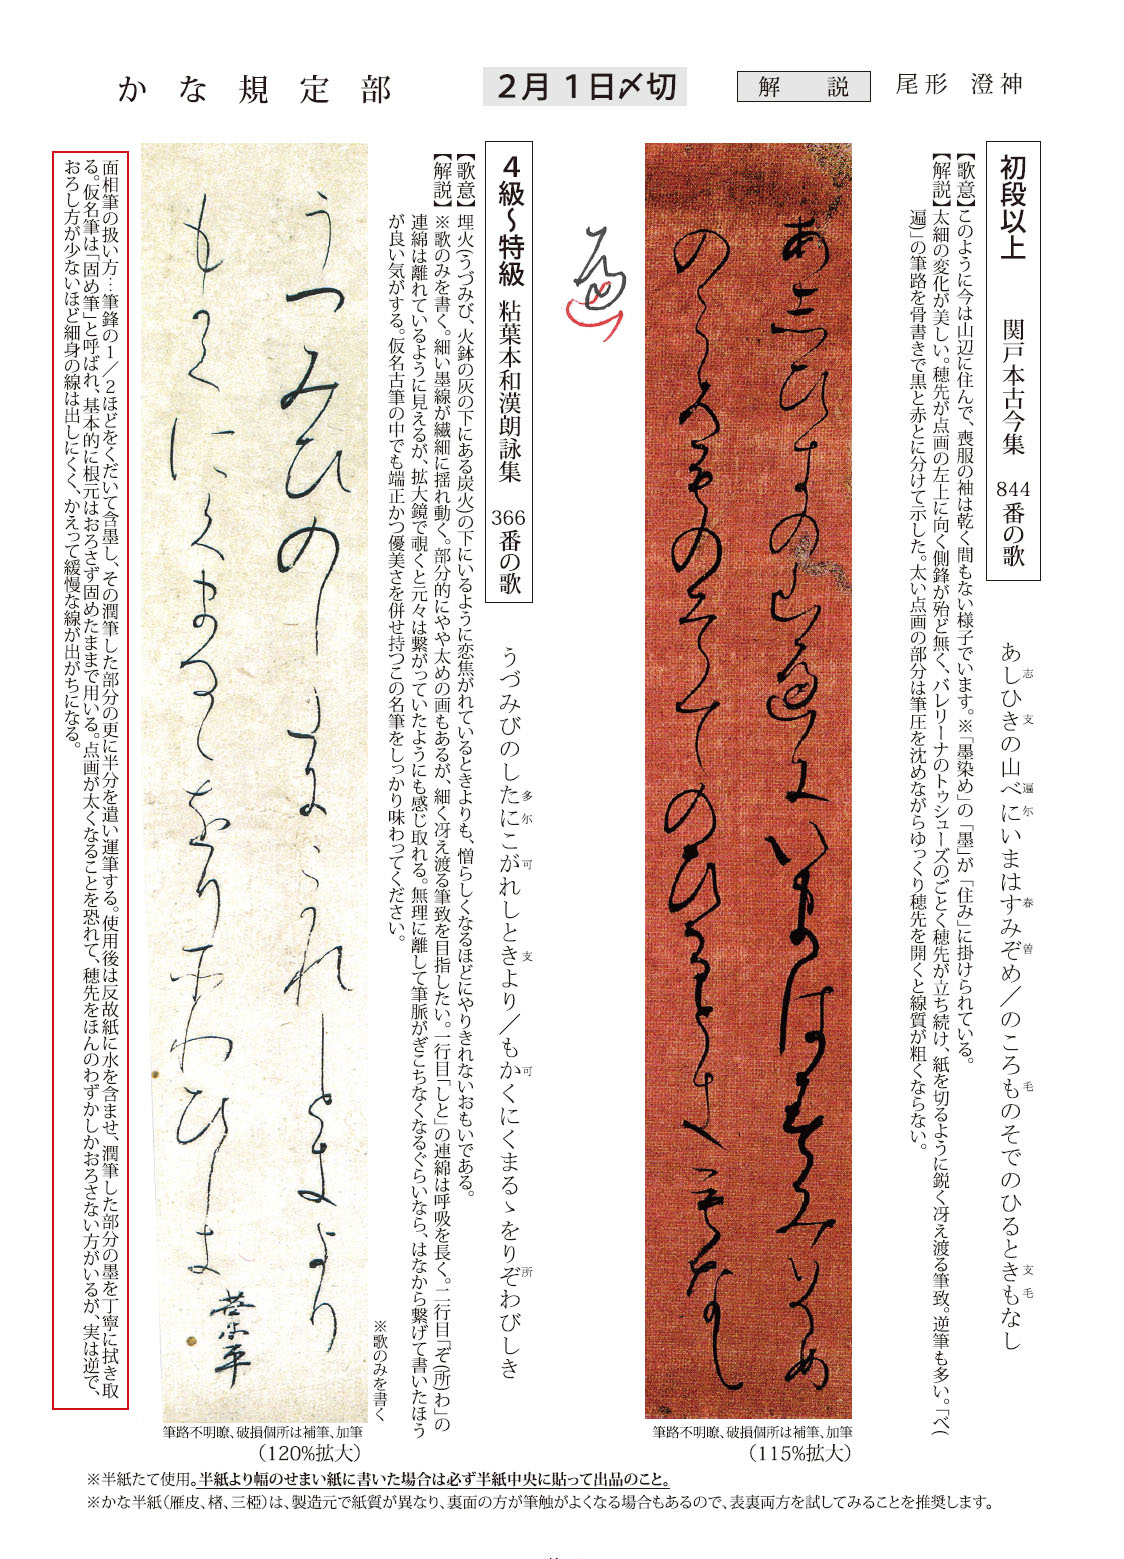 かな規定部
2月1日〆切
解 説
尾形 澄神
初段以上 関戸本古今集 844番の歌
あしひきの山べにいまはすみぞめ／のころものそでのひるときもなし
志 支 遍 尓 春 曽 毛 支 毛
【歌意】このように今は山辺に住んで、喪服の袖は乾く間もない様子でいます。※「墨染め」の「墨」が「住み」に掛けられている。
【解説】太細の変化が美しい。穂先が点画の左上に向く側鋒が殆ど無く、バレリーナのトゥシューズのごとく穂先が立ち続け、紙を切るように鋭く冴え渡る筆致。逆筆も多い。「べ（
遍）」の筆路を骨書きで黒と赤とに分けて示した。太い点画の部分は筆圧を沈めながらゆっくり穂先を開くと線質が粗くならない。
あ志ひ支の山遍尓いまは春みそめ
のころ毛のそてのひると支毛なし
遍
筆路不明瞭、破損個所は補筆、加筆
（115%拡大）
4級〜特級 粘葉本和漢朗詠集 366番の歌
うづみびのしたにこがれしときより／もかくにくまるゝをりぞわびしき
多 尓 可 支 可 所
【歌意】埋火（うづみび、火鉢の灰の下にある炭火）の下にいるように恋焦がれているときよりも、憎らしくなるほどにやりきれないおもいである。
【解説】※歌のみを書く。細い墨線が繊細に揺れ動く。部分的にやや太めの画もあるが、細く冴え渡る筆致を目指したい。一行目「しと」の連綿は呼吸を長く。二行目「ぞ（所）わ」の
連綿は離れているように見えるが、拡大鏡で覗くと元々は繋がっていたようにも感じ取れる。無理に離して筆脈がぎこちなくなるぐらいなら、はなから繋げて書いたほう
が良い気がする。仮名古筆の中でも端正かつ優美さを併せ持つこの名筆をしっかり味わってください。
※歌のみを書く
うつみひのした尓こかれしときより
もかくにくまるゝをり所わひしき
筆路不明瞭、破損個所は補筆、加筆
（120%拡大）
面相筆の扱い方…筆鋒の1／2ほどをくだいて含墨し、その潤筆した部分の更に半分を遣い運筆する。使用後は反故紙に水を含ませ、潤筆した部分の墨を丁寧に拭き取
る。仮名筆は「固め筆」と呼ばれ、基本的に根元はおろさず固めたままで用いる。点画が太くなることを恐れて、穂先をほんのわずかしかおろさない方がいるが、実は逆で、
おろし方が少ないほど細身の線は出しにくく、かえって緩慢な線が出がちになる。
※半紙たて使用。半紙より幅のせまい紙に書いた場合は必ず半紙中央に貼って出品のこと。
※かな半紙（雁皮、楮、三椏）は、製造元で紙質が異なり、裏面の方が筆触がよくなる場合もあるので、表裏両方を試してみることを推奨します。